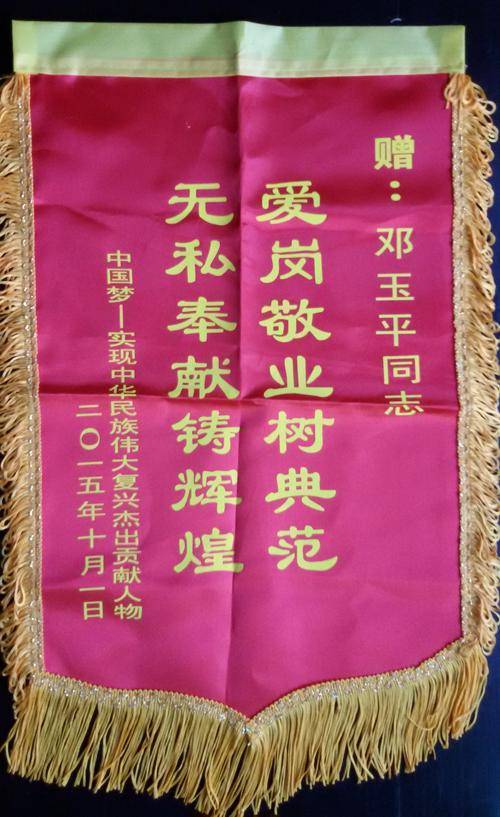 赠：邓玉平同志
爱岗敬业树典范
无私奉献铸辉煌
中国梦—实现中华民族伟大复兴杰出贡献人物
二〇一五年十月一日